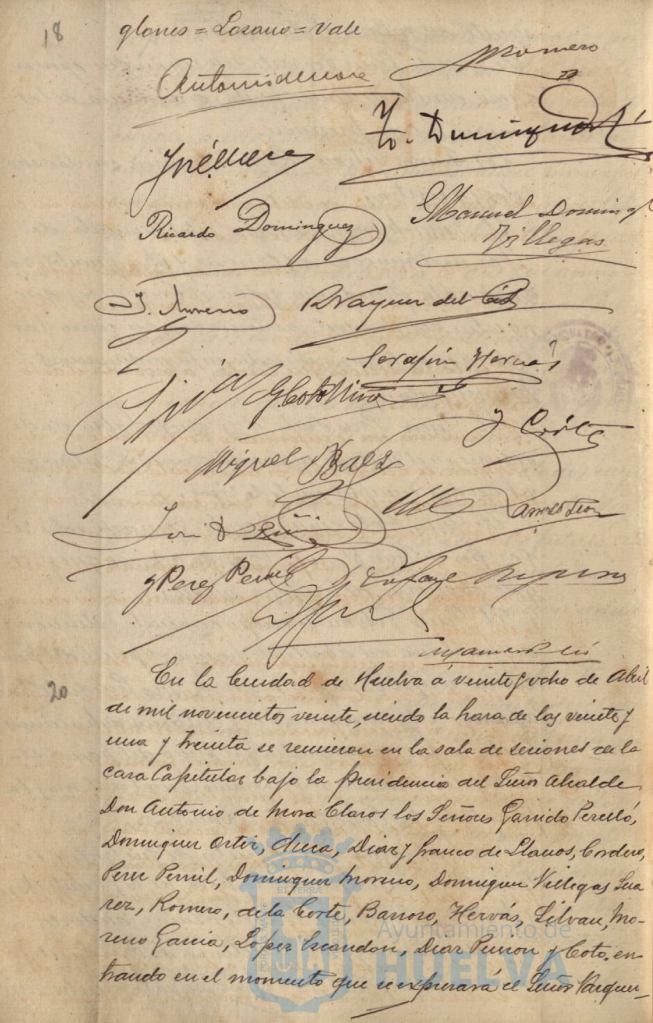 18
glones = Lozano = Vale
Antonio de Mora Romero
José Mesa
F. Dominguez Ortiz
Ricardo Dominguez Manuel Domingz
Villegas
J. Moreno Vazquez del Cid
Serafin Hervás
G. Coto Mora
y Corte
Miguel Baez
José D
y Perez Pernil
20
En la Ciudad de Huelva á veinte y ocho de Abril
de mil novecientos veinte, siendo la hora de las veinte y
una y treinta se reunieron en la sala de sesiones de la
casa Capitular bajo la presidencia del Señor Alcalde
Don Antonio de Mora Claros los Señores Garrido Perelló,
Dominguez Ortiz, Mesa, Diaz y Franco de Llanos, Cordero,
Perez Pernil, Dominguez Moreno, Dominguez Villegas Sua
rez, Romero, de la Corte, Barroso, Hervás, Silvan, Mo-
reno Garcia, Lopez Escandon, Diaz y Coto. en-
trando en el momento que se expresará el Señor Vazquez
Ayuntamiento de
HUELVA